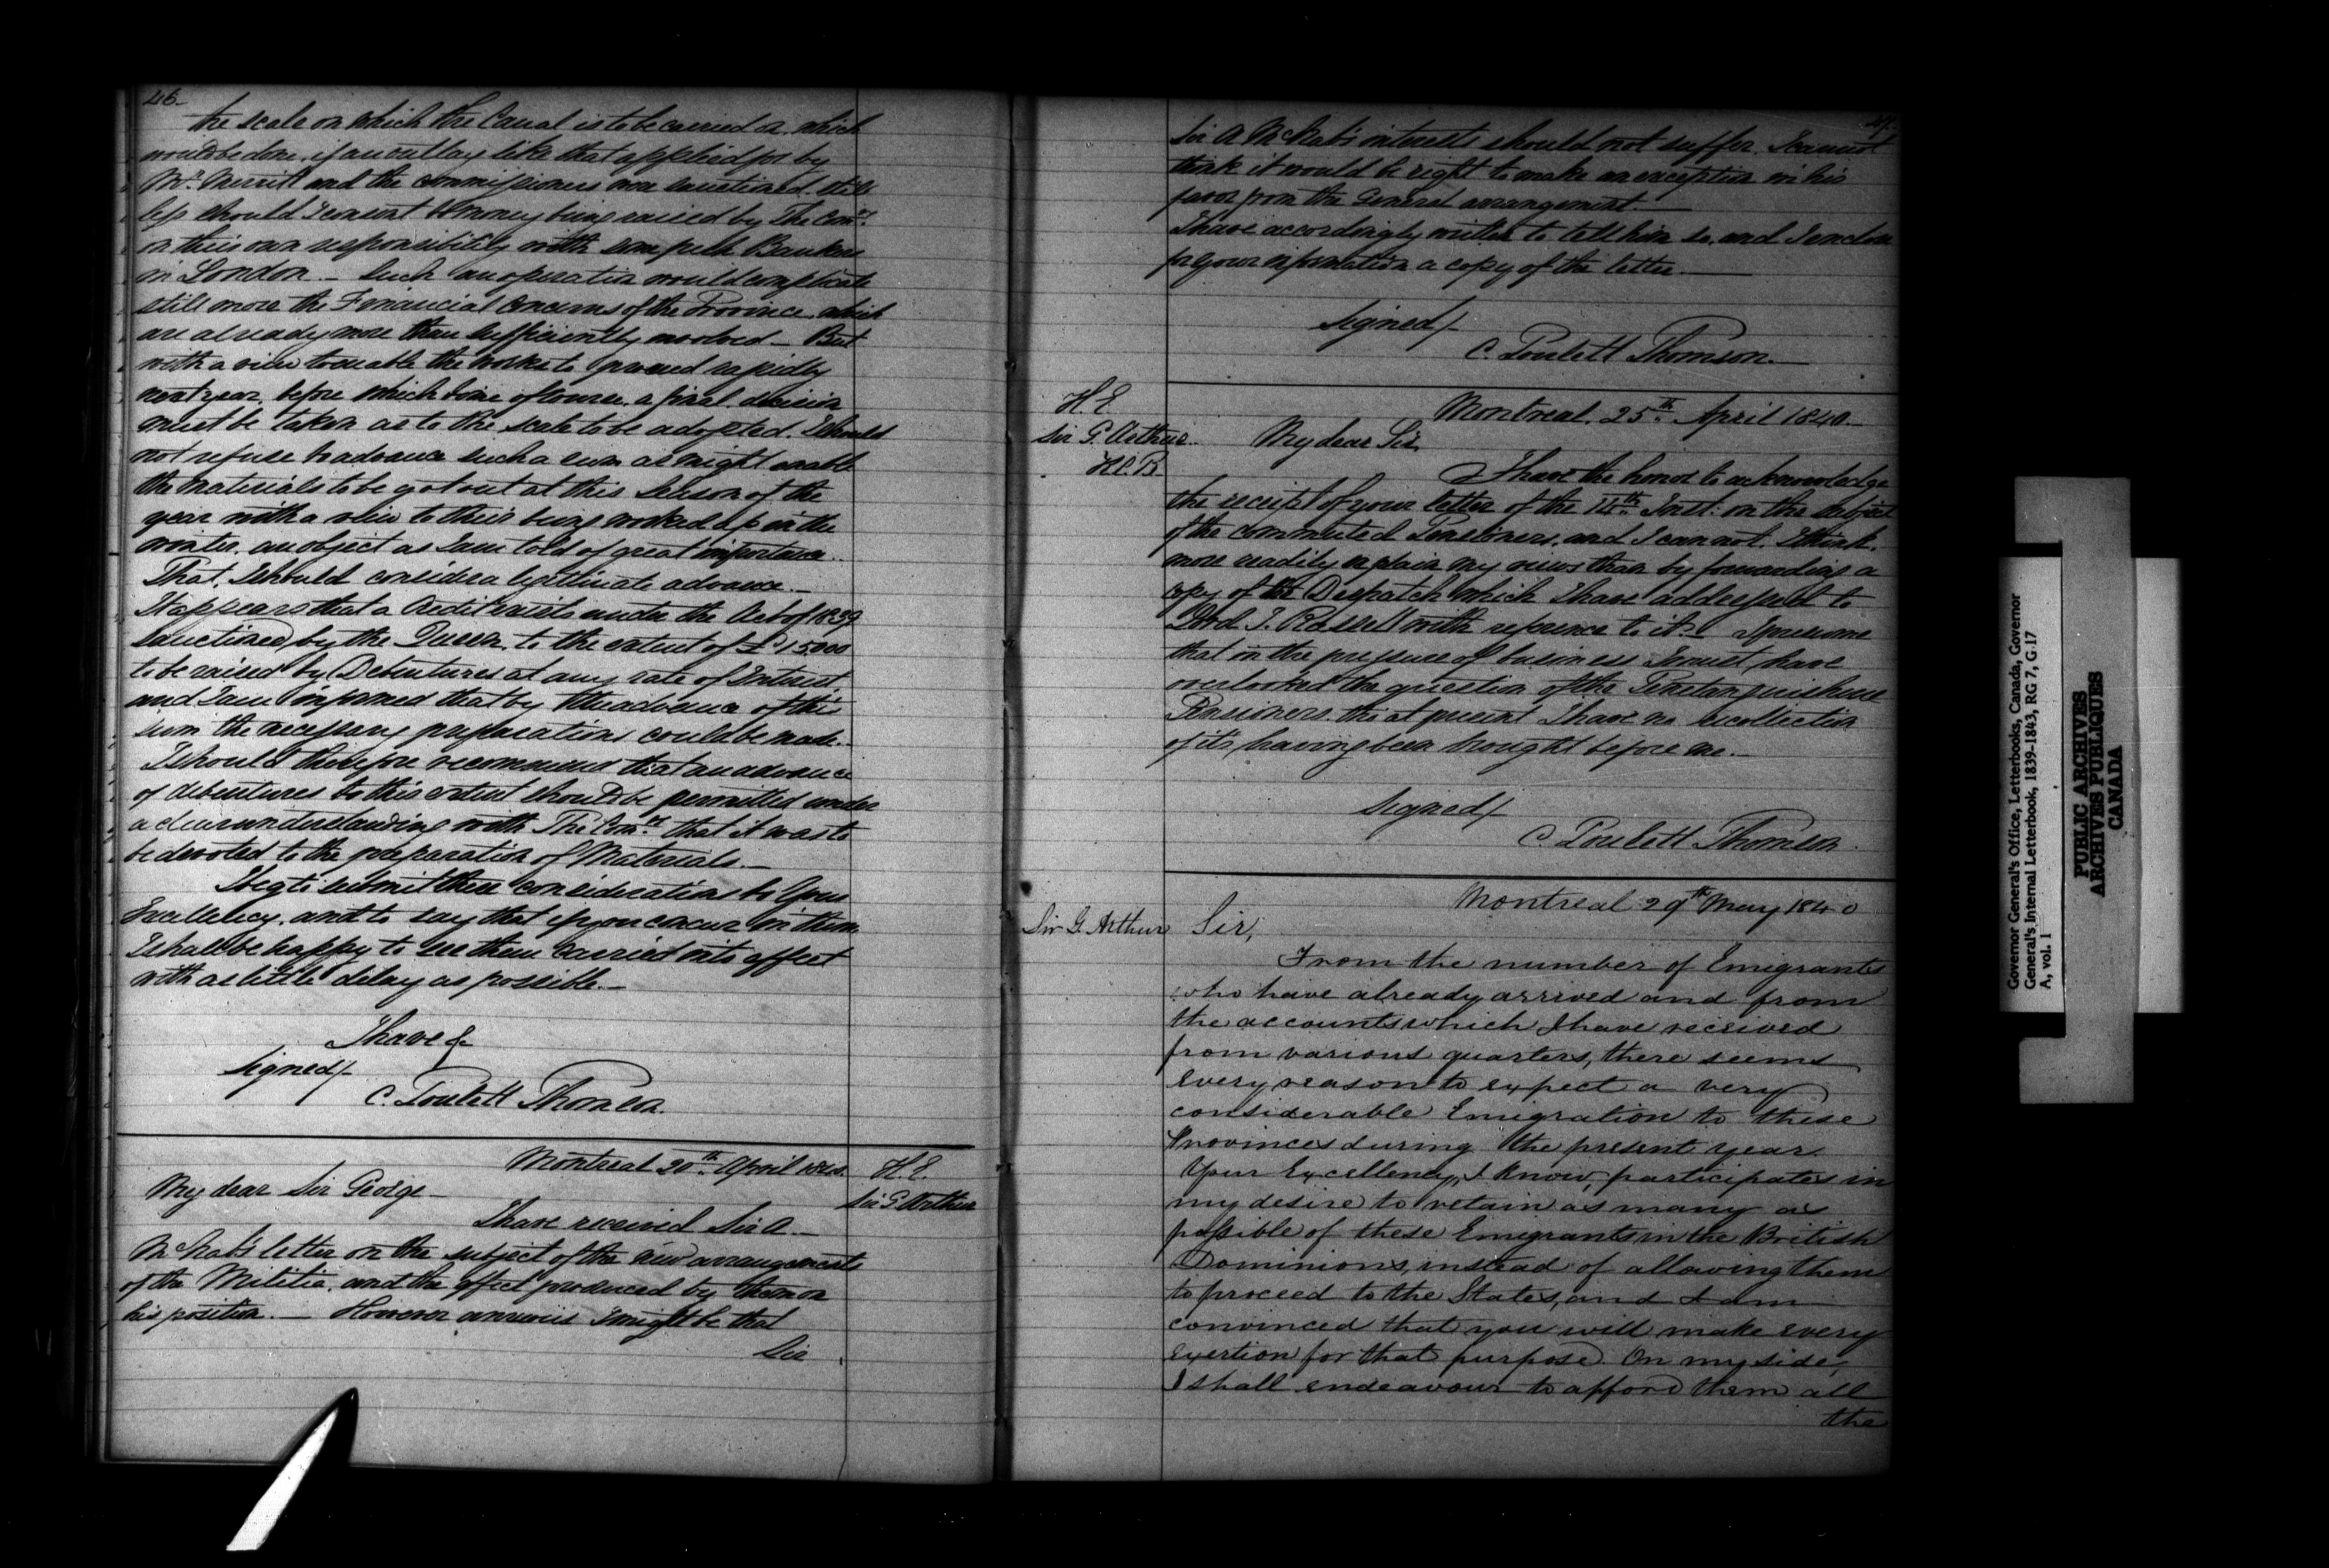 46-
the scale on which the Canal is to be carried on, which
would be done, if an outlay like that applied for by
Mr. Merritt and the Commissioners were sanctioned. Still
less should I consent to money being raised by The Comrs.
on their own responsibility with Bankers
in London - Such an operation would complicate
still more the Financial concerns of the Province, which
are already more than sufficiently involved - But
with a view to enable the works to proceed rapidly
next year, before which time of course, a final decision
must be taken as to the scale to be adopted. I should
not refuse to advance such a sum as might enable
the materials to be got out at this Season of the
year with a view to their being worked up in the
winter, an object as I am told of great importance.
That, I should consider a legitimate advance.-
It appears that a Credit exists under the Act of 1839
sanctioned by the Queen, to the extent of £15000
to be raised by Debentures at any rate of Interest
and I am informed that by the advance of this
sum the necessary preparations could be made.-
I should therefore recommend that an advance
of debentures to this extent should be permitted under
a clear understanding with The Comrs. that it was to
be devoted to the preparation of Materials.-
I beg to submit these considerations to Your
Excellency, and to say that if you concur in them
I shall be happy to see them carried into effect
with as little delay as possible.-
I have &
Signed/-
C. Poulett Thomson.
Montreal 20th April 1840.
H.E.
Sir G Arthur
My dear Sir George-
I have received Sir A.-
McNab's letter on the subject of the new arrangements
of the Militia, and the effect produced by them on
his position.- However anxious I might be that
Sir
47.
Sir A McNab's interests should not suffer, I cannot
think it would be right to make an exception in his
favor from the General arrangement.-
I have accordingly written to tell him so, and I enclose
for your information a copy of the letter.-
Signed/-
C. Poulett Thomson.-
Montreal. 25th April 1840.-
H.E.
Sir G. Arthur.
My dear Sir,
I have the honor to acknowledge
the receipt of your letter of the 14th Inst: on the subject
of the commuted Pensioners, and I cannot, I think,
more readily explain my views than by forwarding a
copy of the Despatch which I have addressed to
Lord J. Russell with reference to it.- I presume
that in the pressure of business I must have
overlooked the question of the Penetanguishene
Pensioners, tho' at present I have no recollection
of its having been brought before me.-
Signed/-
C Poulett Thomson.
Montreal 29th May 1840
Sir G. Arthur
Sir,
From the number of Emigrants
who have already arrived and from
the accounts which I have received
from various quarters, there seems
every reason to expect a very
considerable Emigration to these
Provinces during the present year.
Your Excellency, I know, participates in
my desire to retain as many as
possible of these Emigrants in the British
Dominions, instead of allowing them
to proceed to the States, and I am
convinced that you will make every
exertion for that purpose. On my side,
I shall endeavour to afford them all
the
Governor General's Office, Letterbooks, Canada, Governor
General's Internal Letterbook, 1839-1843, RG 7, G 17
A, vol. 1
PUBLIC ARCHIVES
ARCHIVES PUBLIQUES
CANADA